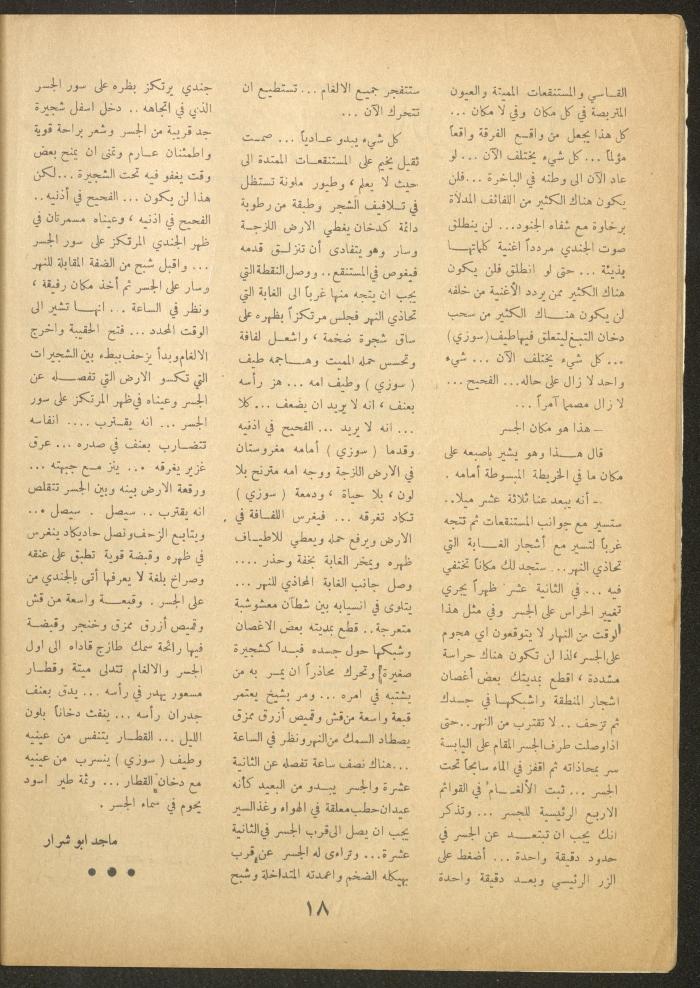 القاسي والمستنقعات الميتة والعيون
المتربصة في كل مكان وفي لا مكان ...
كل هذا يجعل من واقع الفرقة واقعاً
مؤلماً ... كل شيء يختلف الآن ... لو
عاد الآن الى وطنه في الباخرة ... فلن
يكون هناك الكثير من اللفائف المدلاة
برخاوة مع شفاه الجنود... لن ينطلق
صوت الجندي مردداً اغنية كلماتها
بذيئة ... حتى لو انطلق فلن يكون
هناك الكثير ممن يردد الأغنية من خلفه
لن يكون هناك الكثير من سحب
دخان التبغ ليتعلق فيها طيف (سوزي)
... كل شيء يختلف الآن ... شيء
واحد لا زال على حاله... الفحيح ...
لا زال مصمما آمراً ...
ـ هذا هو مكان الجسر
قال هذا وهو يشير باصبعه على
مكان ما في الخريطة المبسوطة أمامه .
ـ أنه يبعد عنا ثلاثة عشر ميلا..
ستسير مع جوانب المستنقعات ثم تتجه
غرباً لتسير مع أشجار الغابة التي
تحاذي النهر.. ستجد لك مكاناً تختفي
فيه ... في الثانية عشر ظهراً يجري
تغيير الحراس على الجسر وفي مثل هذا
الوقت من النهار لا يتوقعون اي هجوم
على الجسر ، لذا لن تكون هناك حراسة
مشددة ، اقطع بمديتك بعض أغصان
اشجار المنطقة واشبكها في جسدك
ثم تزحف .. لا تقترب من النهر.. حتى
اذا وصلت طرف الجسر المقام على اليابسة
سر بمحاذاته ثم اقفز في الماء سابحاً تحت
الجسر ... ثبت الألغام في القوائم
الاربع الرئيسية للجسر ... وتذكر
انك يجب ان تبتعد عن الجسر في
حدود دقيقة واحدة ... أضغط على
الزر الرئيسي وبعد دقيقة واحدة
ستنفجر جميع الالغام ... تستطيع ان
تتحرك الآن ...
كل شيء يبدو عادياً ... صمت
ثقيل يخيم على المستنقعات الممتدة الى
حيث لا يعلم ، وطيور ملونة تستظل
في تلافيف الشجر وطبقة من رطوبة
دائمة كدخان يغطي الارض اللزجة
وسار وهو يتفادى أن تنزلق قدمه
فيغوص في المستنقع .. ووصل النقطة التي
يجب ان يتجه منها غرباً الى الغابة التي
تحاذي النهر فجلس مرتكزاً بظهره على
ساق شجرة ضخمة ، واشعل لفافة
وتحسس حمله المميت وهاجمه طيف
( سوزي ) وطيف امه ... هز رأسه
بعنف ، انه لا يريد ان يضعف ... كلا
... انه لا يريد ... الفحيح في اذنيه
وقدما ( سوزي ) أمامه مغروستان
في الأرض اللزجة ووجه امه مترنح بلا
لون ، بلا حياة ، ودمعة ( سوزي )
تكاد تغرقه ... فيغرس اللفافة في
الارض ويرفع حمله ويعطي للاطياف
ظهره ويمخر الغابة بخفة وحذر ....
وصل جانب الغابة المحاذي للنهر ...
يتلوى في انسيابه بين شطآن معشوشبة
متعرجة.. قطع بمديته بعض الاغصان
وشبكها حول جسده فبدا كشجيرة
صغيرة وتحرك محاذراً ان يمر به من
يشتبه في امره ... ومر بشيخ يعتمر
قبعة واسعة من قش وقميص أزرق ممزق
يصطاد السمك من النهر ونظر في الساعة
... هناك نصف ساعة تفصله عن الثانية
عشرة والجسر يبدو من البعيد كأنه
عيدان حطب معلقة في الهواء وغذ السير
يجب ان يصل الى قرب الجسر في الثانية
عشرة ... وتراءى له الجسر عن قرب
بهيكله الضخم واعمدته المتداخلة وشبح
جندي يرتكز بظره على سور الجسر
الذي في اتجاهه .. دخل اسفل شجيرة
جد قريبة من الجسر وشعر براحة قوية
واطمئنان عارم وتمنى ان يمنح بعض
وقت يغفو فيه تحت الشجيرة ... لكن
هذا لن يكون ... الفحيح في أذنيه ..
الفحيح في اذنيه ، وعيناه مسمرتان في
ظهر الجندي المرتكز على سور الجسر
... واقبل شبح من الضفة المقابلة للنهر
وسار على الجسر ثم أخذ مكان رفيقه ،
ونظر في الساعة ... انها تشير الى
الوقت المحدد ... فتح الحقيبة واخرج
الالغام وبدأ يزحف ببطء بين الشجيرات
التي تكسو الارض التي تفصله عن
الجسر وعيناه في ظهر المرتكز على سور
الجسر ... انه يقترب .... انفاسه
تتضارب بعنف في صدره ... عرق
غزير يغرقه ... ينز مع جبهته ...
ورقعة الارض بينه وبين الجسر تتقلص
انه يقترب .. سيصل . سيصل ...
ويتابع الزحف ونصل حاد يكاد ينغرس
في ظهره وقبضة قوية تطبق على عنقه
وصراخ بلغة لا يعرفها أتى بالجندي من
على الجسر . وقبعة واسعة من قش
وقميص أزرق ممزق وخنجر وقبضة
فيها رائحة سمك طازج قاداه الى اول
الجسر والالغام تتدلى ميتة وقطار
مسعور يهدر في رأسه ... يدق بعنف
جدران رأسه ... ينفث دخاناً بلون
الليل ... القطار يتنفس من عينيه
وطيف ( سوزي ) ينسرب من عينيه
مع دخان القطار ... وثمة طير اسود
يحوم في سماء الجسر .
ماجد ابو شرار
● ● ●
١٨